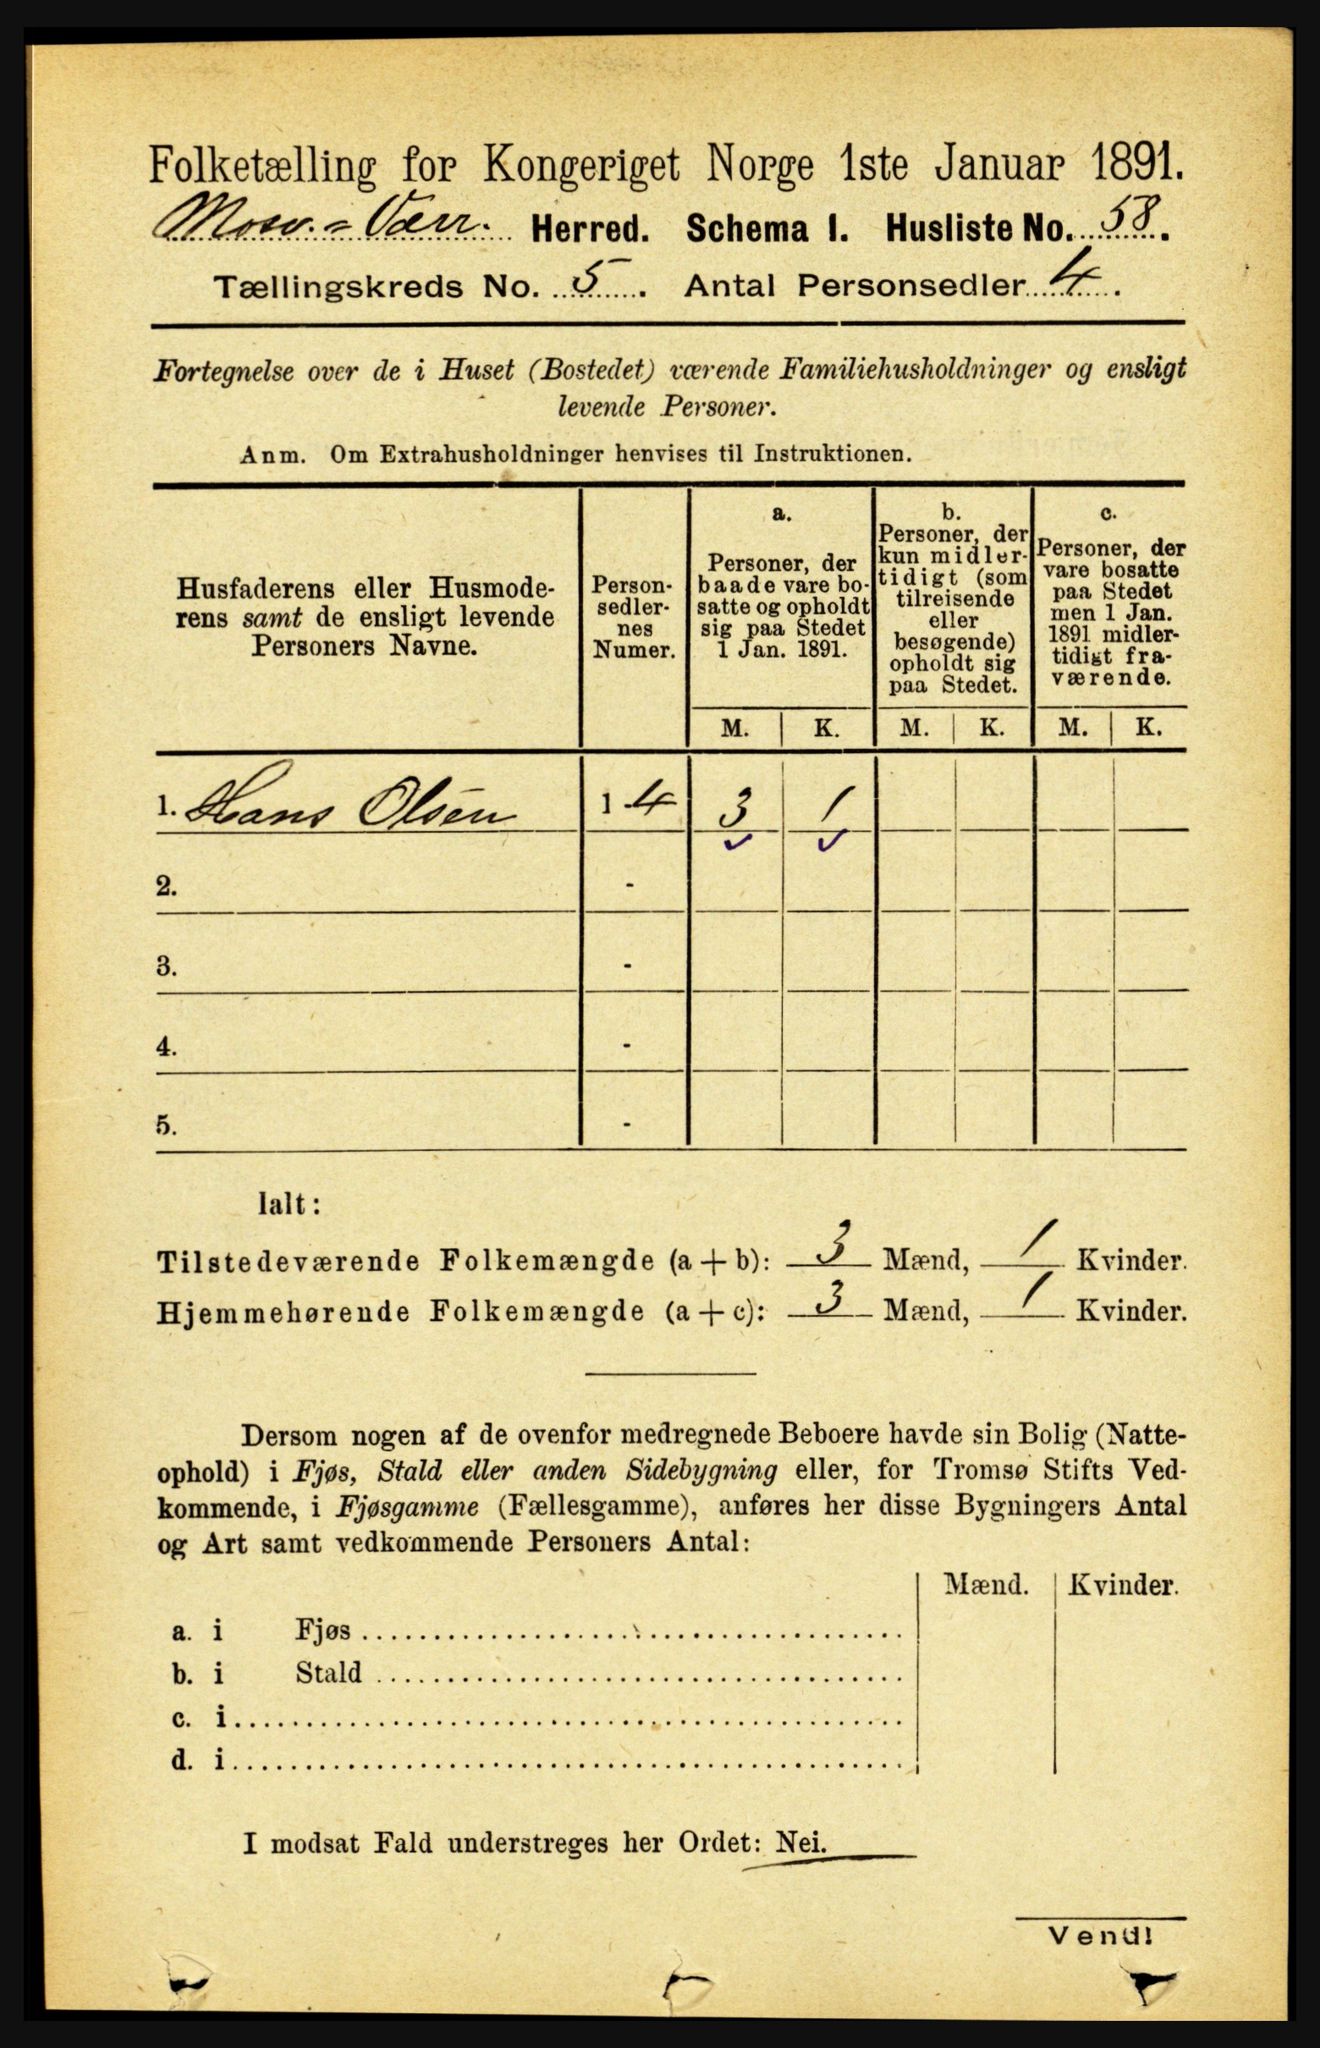 Folketælling for Kongeriget Norge 1ste Januar 1891.
Mosv. = Værr. Herred. Schema I. Husliste No. 58.
Tællingskreds No. 5. Antal Personsedler 4.
Fortegnelse over de i Huset (Bostedet) værende Familiehusholdninger og ensligt
levende Personer.
Anm. Om Extrahusholdninger henvises til Instruktionen.
Husfaderens eller Husmode-
rens samt de ensligt levende
Personers Navne.
Person-
sedler-
nes
Numer.
a.
Personer, der
baade vare bo-
satte og opholdt
sig paa Stedet
1 Jan. 1891.
b.
Personer, der
kun midler-
tidigt (som
tilreisende
eller
besøgende)
opholdt sig
paa Stedet.
c.
Personer, der
vare bosatte
paa Stedet
men 1 Jan.
1891 midler-
tidigt fra-
værende.
M. K. M. K. M. K.
1. Hans Olsen 1-4 3 1
2. -
3. -
4. -
5. -
Ialt:
Tilstedeværende Folkemængde (a + b): 3 Mænd, 1 Kvinder.
Hjemmehørende Folkemængde (a + c): 3 Mænd, 1 Kvinder.
Dersom nogen af de ovenfor medregnede Beboere havde sin Bolig (Natte-
ophold) i Fjøs, Stald eller anden Sidebygning eller, for Tromsø Stifts Ved-
kommende, i Fjøsgamme (Fællesgamme), anføres her disse Bygningers Antal
og Art samt vedkommende Personers Antal:
Mænd. Kvinder.
a. i Fjøs
b. i Stald
c. i
d. i
I modsat Fald understreges her Ordet: Nei.
Vend!